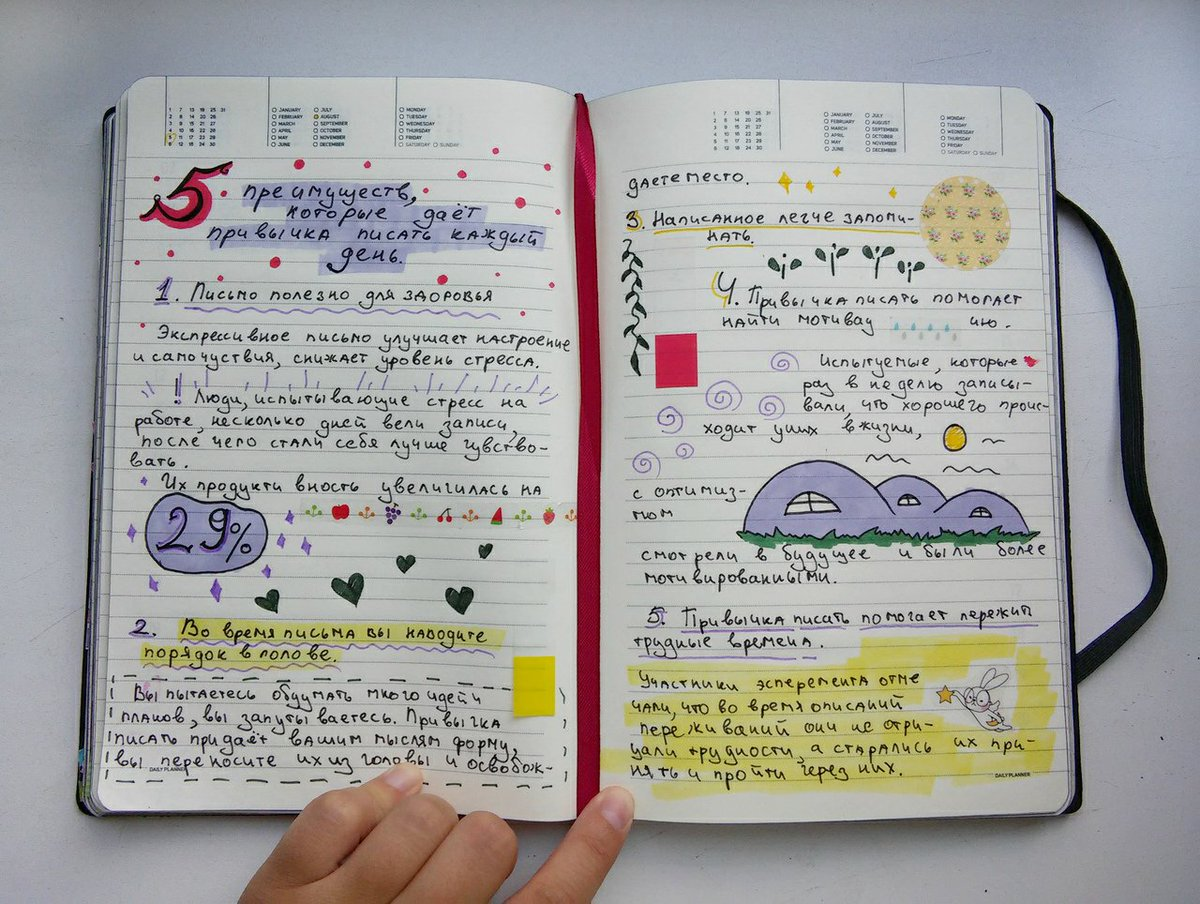 1 7 13 19 25 31 JANUARY JULY MONDAY
2 8 14 20 26 FEBRUARY AUGUST TUESDAY
3 9 15 21 27 MARCH SEPTEMBER WEDNESDAY
4 10 16 22 28 APRIL OCTOBER THURSDAY
5 11 17 23 29 MAY NOVEMBER FRIDAY
6 12 18 24 30 JUNE DECEMBER SATURDAY SUNDAY
5 преимуществ,
которые даёт
привычка писать каждый
день.
1. Письмо полезно для здоровья
Экспрессивное письмо улучшает настроение
и самочуствия, снижает уровень стресса.
! Люди, испытывающие стресс на
работе, несколько дней вели записи,
после чего стали себя лучше чувство-
вать.
Их продуктивность увеличилась на
29%
2. Во время письма вы наводите
порядок в голове.
Вы пытаетесь обдумать много идей и
планов, вы запутываетесь. Привычка
писать придаёт вашим мыслям форму,
вы переносите их из головы и освобож-
DAILY PLANNER
1 7 13 19 25 31 JANUARY JULY MONDAY
2 8 14 20 26 FEBRUARY AUGUST TUESDAY
3 9 15 21 27 MARCH SEPTEMBER WEDNESDAY
4 10 16 22 28 APRIL OCTOBER THURSDAY
5 11 17 23 29 MAY NOVEMBER FRIDAY
6 12 18 24 30 JUNE DECEMBER SATURDAY SUNDAY
даете место.
3. Написанное легче запоми-
нать.
4. Привычка писать помогает
найти мотивац ию.
Испытуемые, которые
раз в неделю записы-
вали, что хорошего проис-
ходит у них в жизни,
с оптимиз-
мом
смотрели в будущее и были более
мотивированными.
5. Привычка писать помогает пережить
трудные времена.
Участники эсперемента отме
чали, что во время описаний
переживаний они не отри-
цали трудности, а старались их при-
нять и пройти через них.
DAILY PLANNER